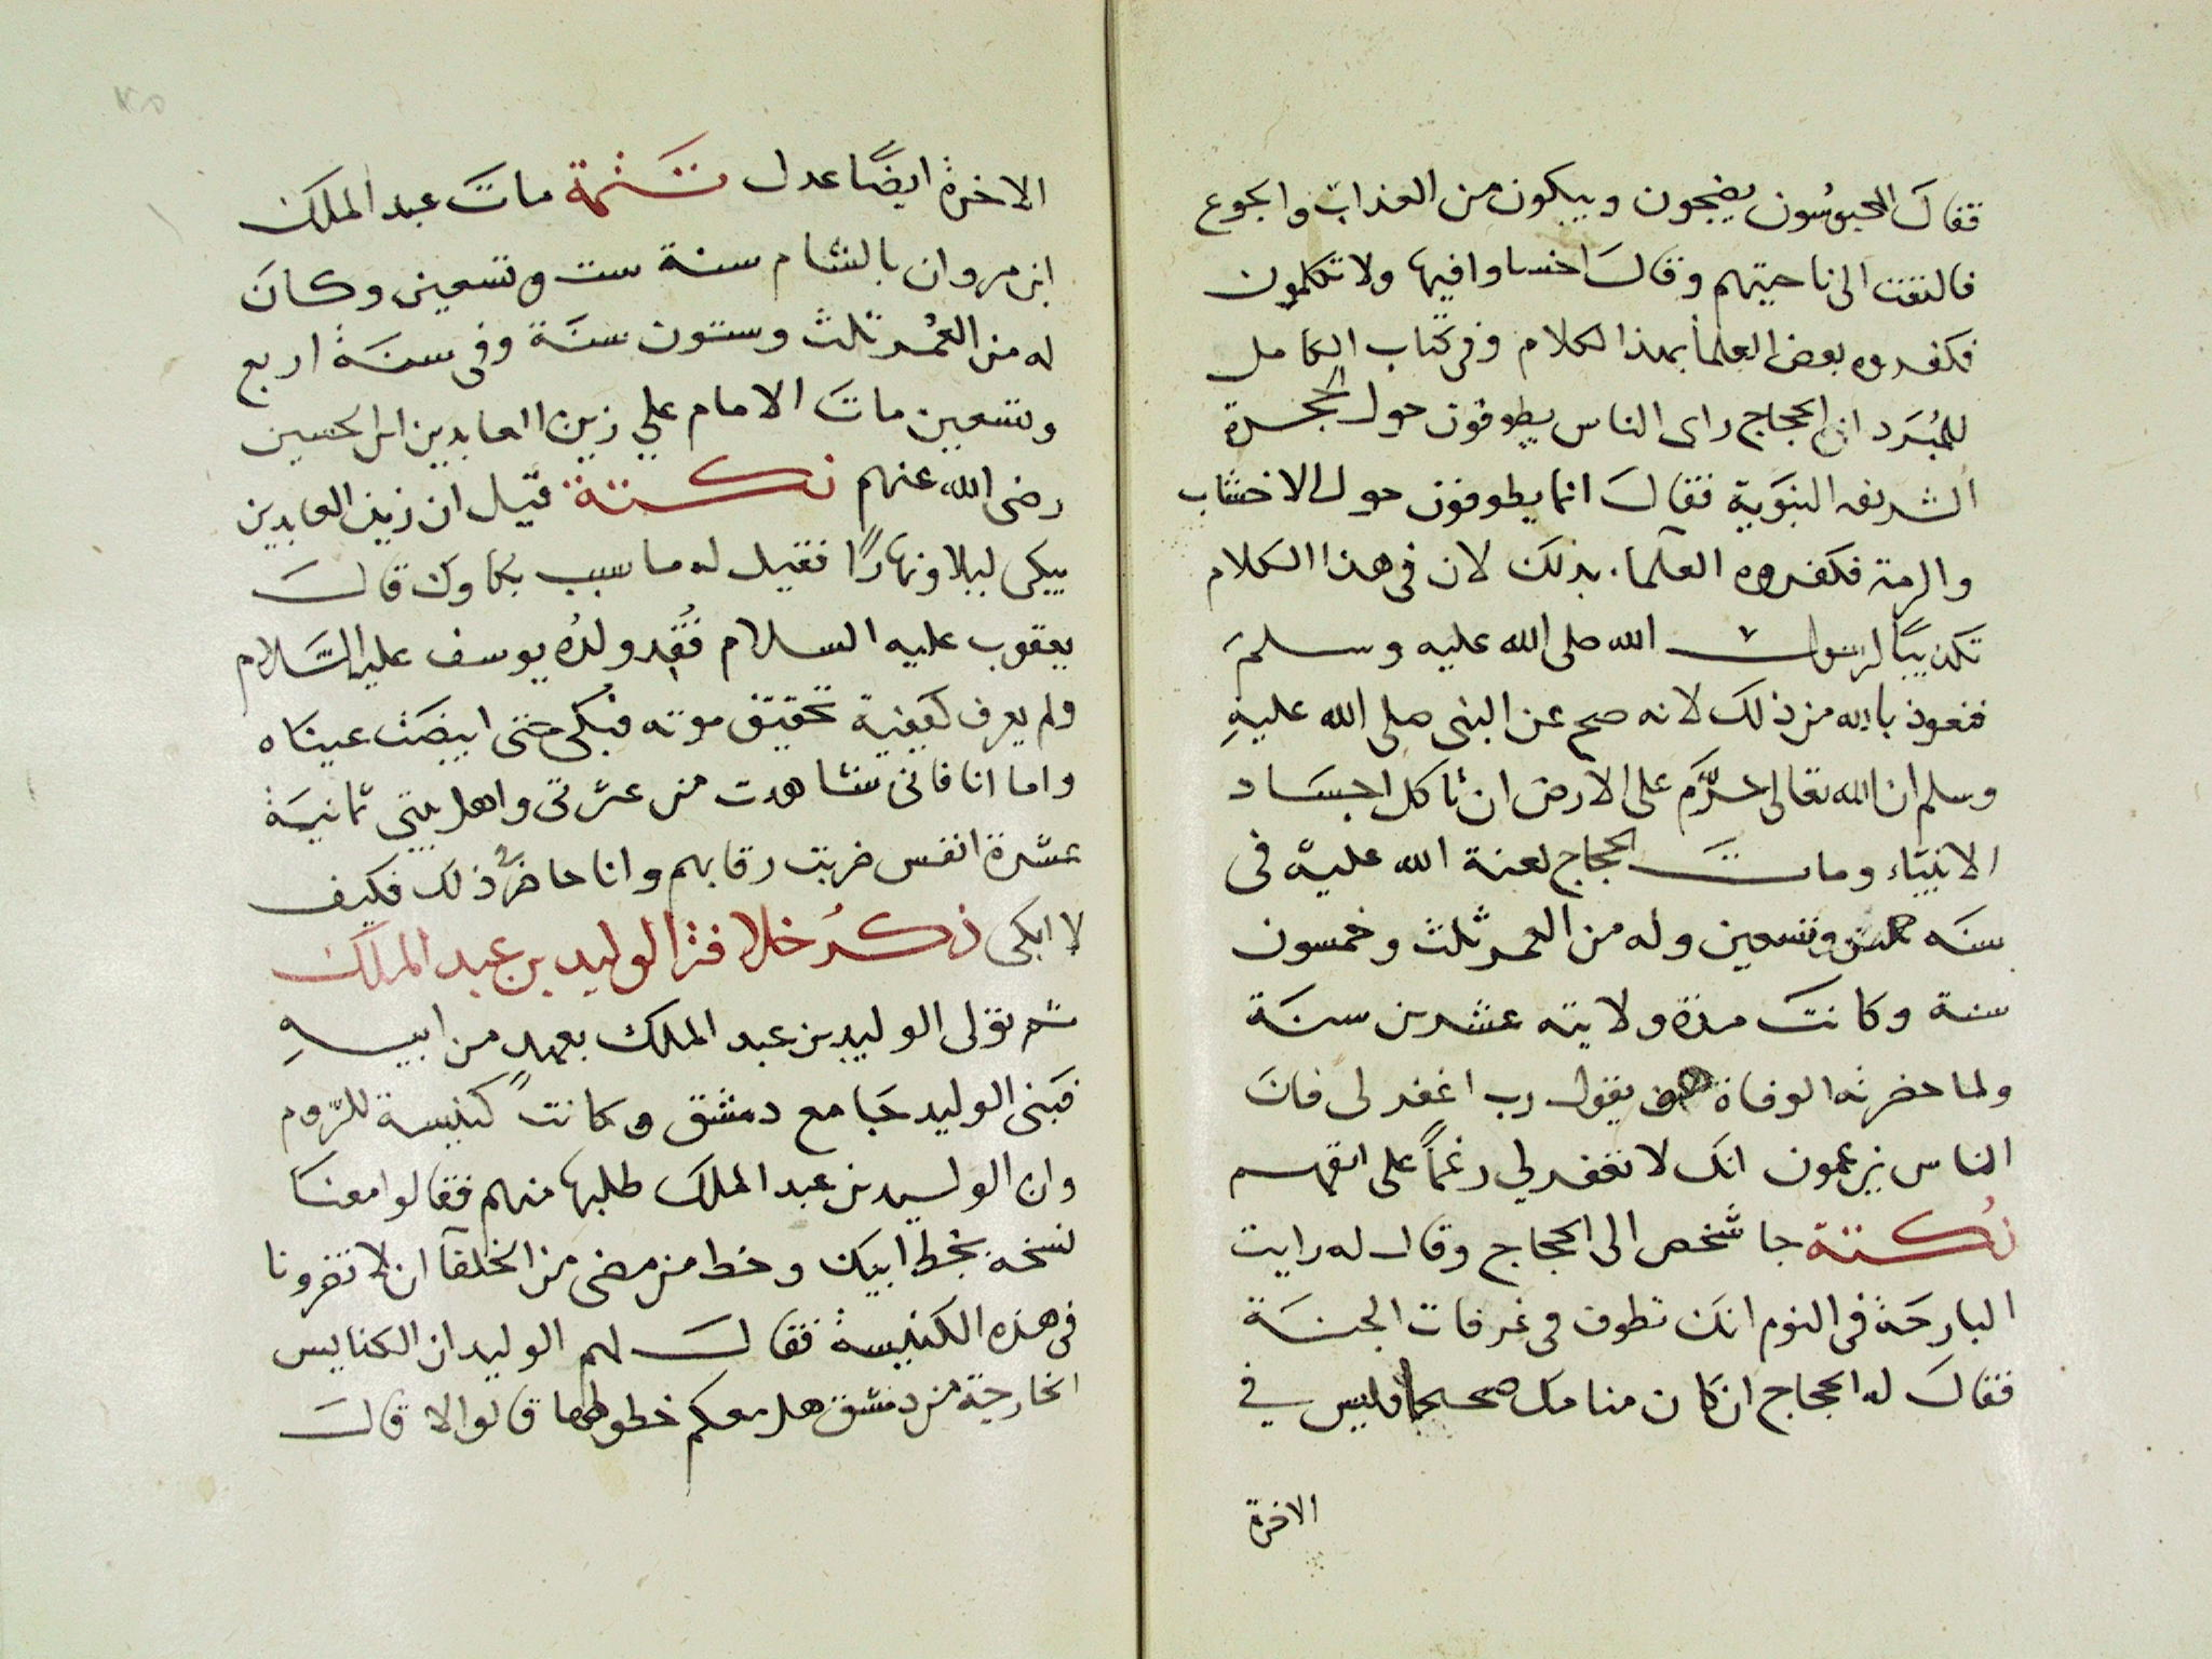 فقال المحبوسون يضجون ويبكون من العذاب والجوع
فالتفت الى ناحيتهم وقال اخساوا فيها ولا تكلمون
فكفروه بعض العلما بهذا الكلام وفى كتاب الكامل
للمُبَرد ان الحجاج راى الناس يطوفون حول الحجرة
الشريفه النبَوية فقال انما يطوفون حول الاخشاب
والرمة فكفروه العلما بذلك لان فى هذا الكلام
تكذيبًا لرسول الله صلى الله عليه وسلم
فنعوذ بالله من ذلك لانه صح عن النبى صلى الله عليهِ
وسلم ان الله تعالى حرَّم على الارض ان تاكل اجسَاد
الانبيَاء ومات الحجاج لعنة الله عليه فى
سنَه وتسعين وله من العمر ثلث وخمسون
سنة وكانت مدة ولايته عشرين سنَة
ولما حضرته الوفاة يقول رب اغفر لى فان
الناس يزعمون انك لا تغفر لي رغمًا على انفهم
نُكتة جا شخص الى الحجاج وقال له رايت
البارحَة فى النوم انك تطوف فى غرفات الجنة
فقال له الحجاج ان كان منامك صحيحا فليس في
الاخرة
الاخرة ايضًا عدل تتمة مات عبد الملك
ابن مروان بالشام سنة ست وتسعين وكان
له من العُمر ثلث وستون سنَة وفى سنَة اربع
وتسعين مات الامام علي زين العابدين ابن الحسين
رضى الله عنهم نكتة قيل ان زين العابدين
يبكى ليلا ونهارًا فقيل له ما سبب بكاوك قال
يعقوب عليه السلام فُقِد ولدُه يوسف عليه السَّلام
ولم يعرف كيفية تحقيق موته فبكى حتى ابيضت عيناه
واما انا فانى شاهدت من عترتى واهل بيتي ثمانيَة
عشرة انفس ضربت رقابهم وانا حاضر فى ذلك فكيف
لا ابكى ذكرُ خلافة الوليد بن عبد الملك
ثم تولى الوليد بن عبد الملك بعهدٍ من ابيهِ
فبَنى الوليد جَامع دمشق وكانت كنيسة للرّوم
وان الوليد بن عبد الملك طلبها منهم فقالوا معنَا
نسخه بخط ابيك وخط من مضى من الخلفآ ان لا تضرونا
فى هذه الكنيسة فقال لهم الوليد ان الكنايس
الخارجة من دمشق هل معكم خطوطها قالوا لا قال